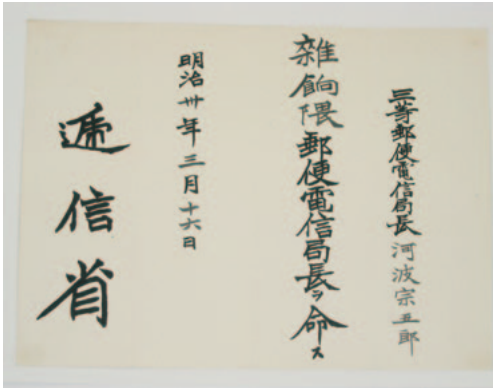 三等郵便電信局長 河波宗五郎
雑餉隈郵便電信局長ヲ命ス
明治卅年三月十六日
逓信省